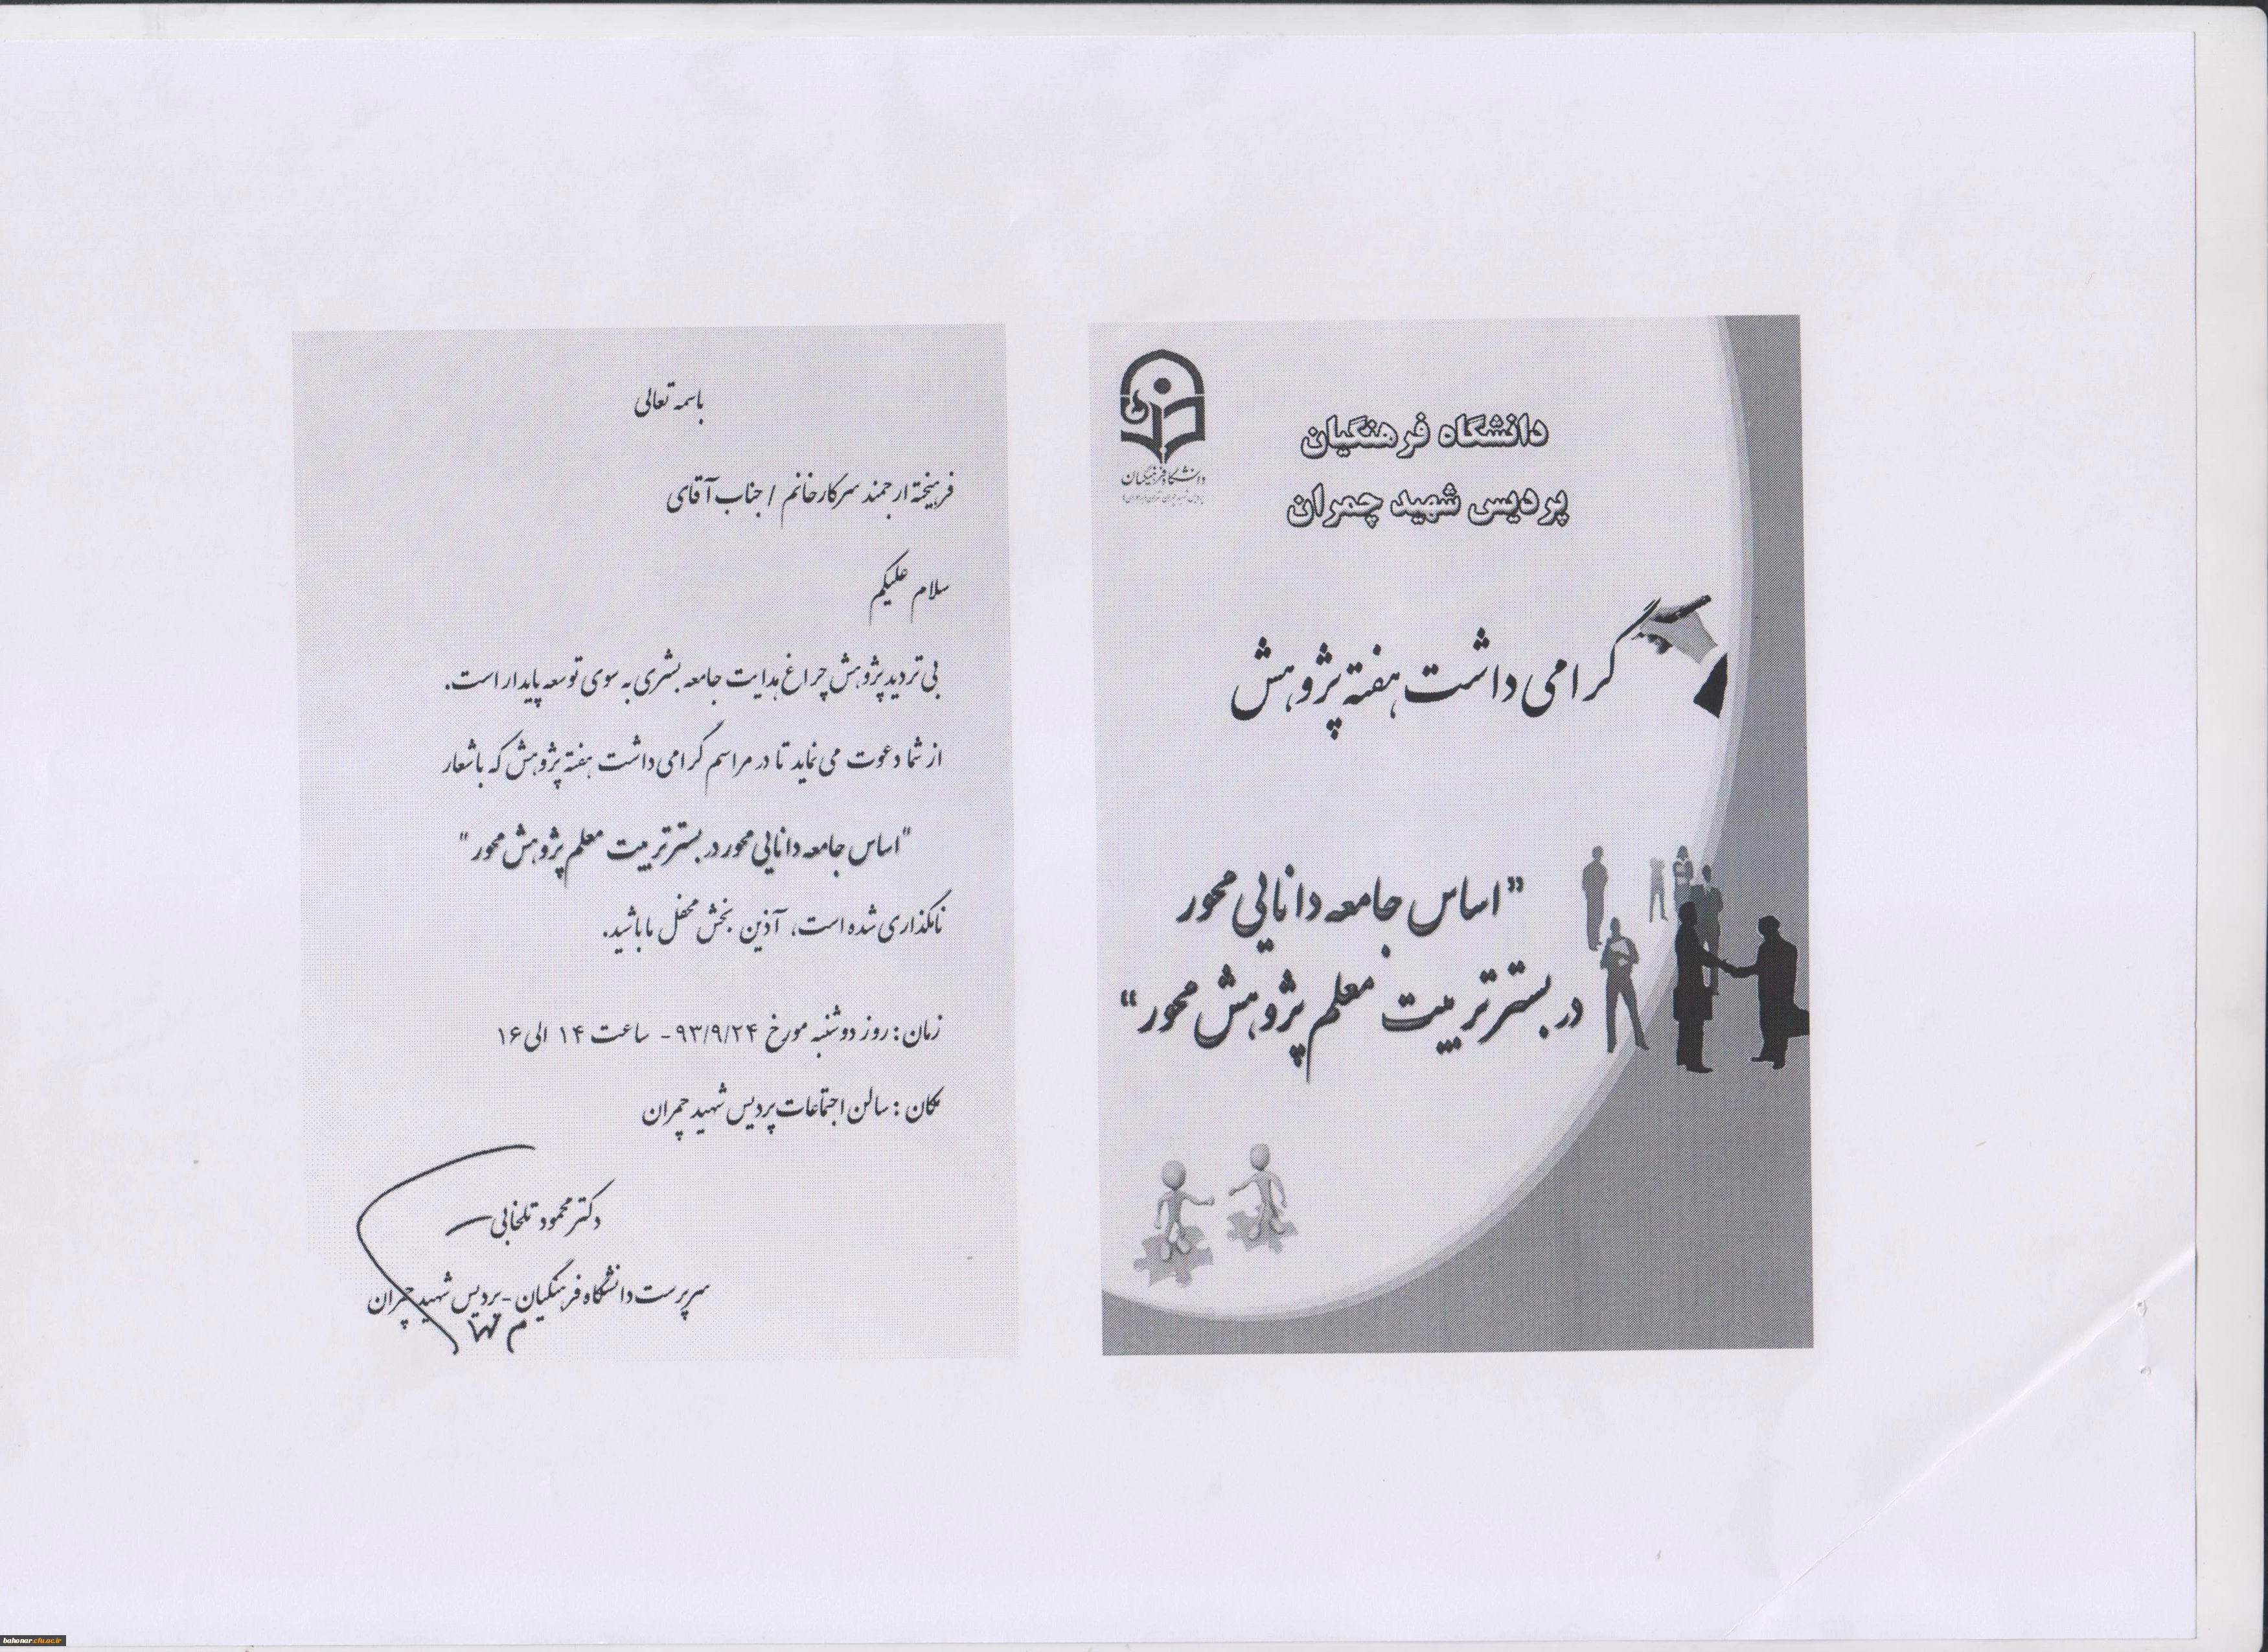 دانشگاه فرهنگیان
دانشگاه فرهنگیان
پردیس شهید چمران
گرامی داشت هفته پژوهش
"اساس جامعه دانایی محور
در بستر تربیت معلم پژوهش محور"
باسمه تعالی
فرهیخته ارجمند سرکار خانم / جناب آقای
سلام علیکم
بی تردید پژوهش چراغ هدایت جامعه بشری به سوی توسعه پایدار است.
از شما دعوت می نماید تا در مراسم گرامی داشت هفته پژوهش که با شعار
"اساس جامعه دانایی محور در بستر تربیت معلم پژوهش محور"
نامگذاری شده است، آذین بخش محفل ما باشید.
زمان: روز دوشنبه مورخ ۹۳/۹/۲۴ - ساعت ۱۴ الی ۱۶
مکان: سالن اجتماعات پردیس شهید چمران
دکتر محمود تلخابی
سرپرست دانشگاه فرهنگیان - پردیس شهید چمران
bahonar.cfu.ac.ir